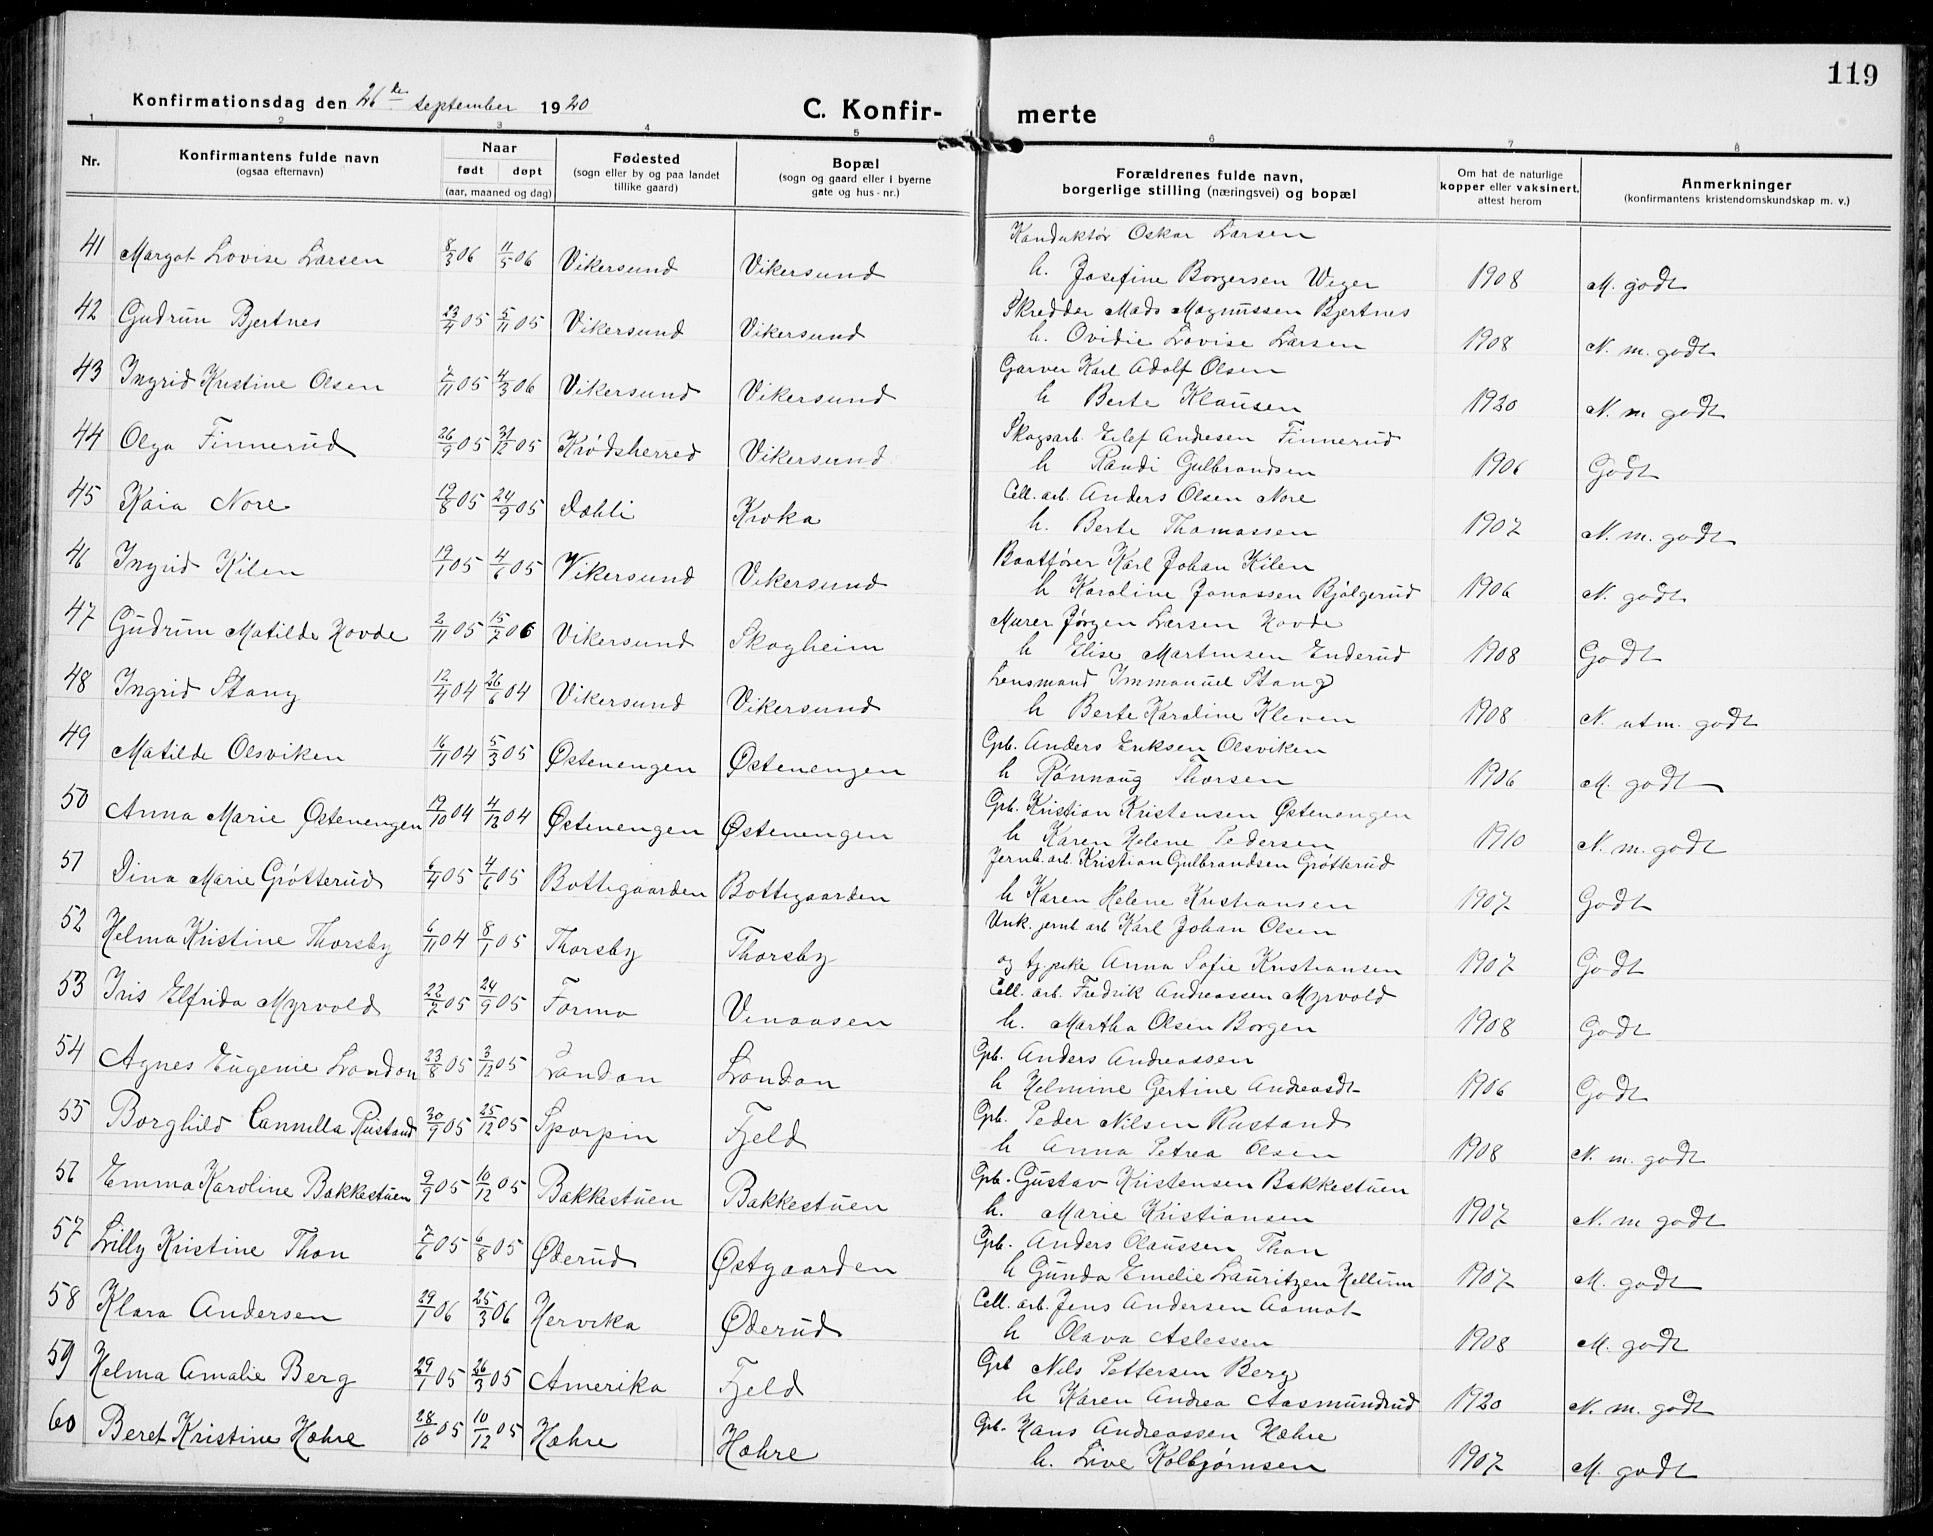 119
Konfirmationsdag den 26de september 1920
C. Konfir- merte
1 2 3 4 5 6 7 8
Nr.
Konfirmantens fulde navn
(ogsaa efternavn)
Naar
født døpt
(aar, maaned og dag)
Fødested
(sogn eller by og paa landet
tillike gaard)
Bopæl
(sogn og gaard eller i byerne
gate og hus-nr.)
Forældrenes fulde navn,
borgerlige stilling (næringsvei) og bopæl
Om hat de naturlige
kopper eller vaksinert,
attest herom
Anmerkninger
(konfirmantens kristendomskundskap m. v.)
Konduktør Oskar Larsen
41 Margot Lovise Larsen 8/3 06 11/5 06 Vikersund Vikersund h. Josefine Borgersen Weger 1908 M. godt
Skredder Mads Magnussen Bjertnes
42 Gudrun Bjertnes 23/4 05 5/11 05 Vikersund Vikersund h. Ovidie Lovise Larsen 1908 N. m. godt
Garver Karl Adolf Olsen
43 Ingrid Kristine Olsen 7/11 05 4/3 06 Vikersund Vikersund h Berte Klausen 1920 N. m godt
Skogsarb. Eilef Andresen Finnerud
44 Olga Finnerud 26/9 05 31/12 05 Krødsherred Vikersund h Randi Gulbrandsen 1906 Godt
Cell. arb. Anders Olsen Nore
45 Kaia Nore 19/8 05 24/9 05 Dæhli Kroka h. Berte Thomassen 1907 N. m. godt
Baatfører Karl Johan Kilen
46 Ingrid Kilen 19/1 05 4/6 05 Vikersund Vikersund h Karoline Jonassen Bjølgerud 1906 N. godt
Murer Jørgen Larsen Hovde
47 Gudrun Matilde Hovde 2/11 05 15/2 06 Vikersund Skogheim h Elise Martinsen Enderud 1908 Godt
Lensmand Immanuel Stang
48 Ingrid Stang 12/4 04 26/6 04 Vikersund Vikersund h Berte Karoline Kleven 1908 N. utm. godt
Gpb. Anders Eriksen Olsviken
49 Matilde Olsviken 16/11 04 5/3 05 Østenengen Østenengen h Rønnaug Thorsen 1906 M. godt
Gpb. Kristian Kristensen Østenengen
50 Anna Marie Østenengen 19/10 04 4/12 04 Østenengen Østenengen h Karen Helene Pedersen 1910 N. m. godt
Jernb. arb Kristian Gulbrandsen Grøtterud
51 Dina Marie Grøtterud 6/4 05 4/6 05 Bottegaarden Bottegaarden h Karen Helene Kristiansen 1907 Godt
Unk. jernb arb Karl Johan Olsen
52 Helma Kristine Thorsby 6/11 04 8/1 05 Thorsby Thorsby og tj. pike Anna Sofie Kristiansen 1907 Godt
Cell. arb. Fredrik Andreassen Myrvold
53 Iris Elfrida Myrvold 22/7 05 24/9 05 Formo Vinaasen h. Martha Olsen Borgen 1908 Godt
Gpb. Anders Andreassen
54 Agnes Eugenie London 23/8 05 3/12 05 London London h Helmine Gertine Andreasdt 1906 Godt
Gpb. Peder Nilsen Rustand
55 Borghild Camilla Rustand 30/9 05 25/12 05 Sporpin Fjeld h Anna Petrea Olsen 1908 N. m. godt
Gpb. Gustav Kristensen Bakkestuen
56 Emma Karoline Bakkestuen 9/9 05 10/12 05 Bakkestuen Bakkestuen h. Marie Kristiansen 1907 N. m godt
Gpb. Anders Olaussen Thon
57 Lilly Kristine Thon 7/6 05 6/8 05 Øderud Østgaarden h Gunda Emelie Lauritzen Hellum 1907 M. godt
Cell. arb. Jens Andersen Aamot
58 Klara Andersen 29/1 06 25/3 06 Hervika Øderud h Olava Aslessen 1908 M. godt
Gpb Nils Pettersen Berg
59 Helma Amalie Berg 29/1 05 26/3 05 Amerika Fjeld h Karen Andrea Aasmundrud 1920 N. m. godt
Gpb. Hans Andreassen Hæhre
60 Beret Kristine Hæhre 28/10 05 10/12 05 Hæhre Hæhre h. Live Kolbjørnsen 1907 M. godt